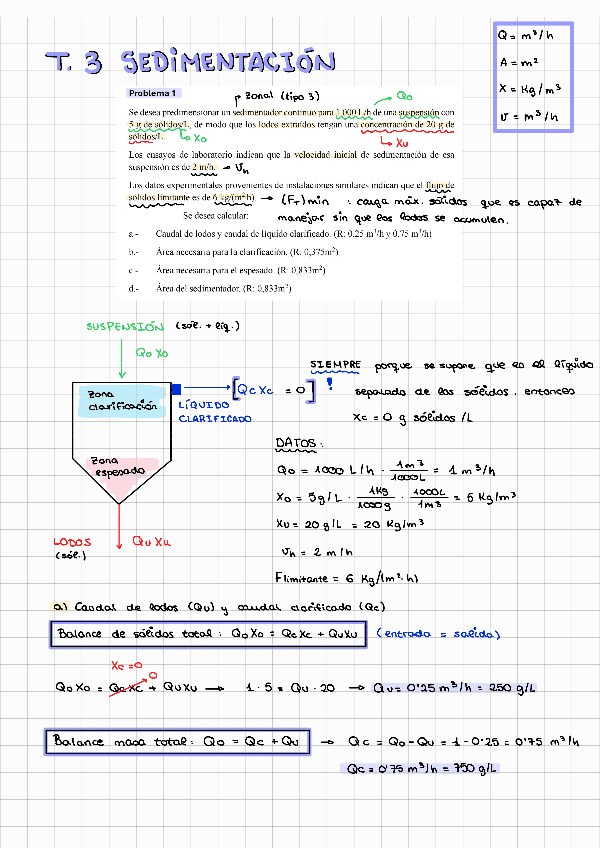 T. 3 SEDIMENTACIÓN
Q = m³/h
A = m²
X = Kg/m³
v = m³/h
Problema 1
Zonal (tipo 3)
Qo
Se desea predimensionar un sedimentador continuo para 1 000 L/h de una suspensión con
5 g de sólidos/L, de modo que los lodos extraídos tengan una concentración de 20 g de
sólidos/L.
Xo
Xu
Los ensayos de laboratorio indican que la velocidad inicial de sedimentación de esa
suspensión es de 2 m/h. → Vh
Los datos experimentales provenientes de instalaciones similares indican que el flujo de
sólidos limitante es de 6 kg/(m²·h) → (FT) min : carga máx. sólidos que es capaz de
manejar sin que los lodos se acumulen.
Se desea calcular:
a.- Caudal de lodos y caudal de líquido clarificado. (R: 0,25 m³/h y 0,75 m³/h)
b.- Área necesaria para la clarificación. (R: 0,375m²)
c.- Área necesaria para el espesado. (R: 0,833m²)
d.- Área del sedimentador. (R: 0,833m²)
SUSPENSIÓN (sól. + líq.)
Qo Xo
zona
clarificación
[Qc Xc = 0] !
LÍQUIDO
CLARIFICADO
SIEMPRE porque se supone que es el líquido
separado de los sólidos, entonces
Xc = 0 g sólidos/L
zona
espesado
LODOS
(sól.)
Qu Xu
DATOS:
Qo = 1000 L/h · 1m³/1000L = 1 m³/h
Xo = 5g/L · 1Kg/1000g · 1000L/1m³ = 5 Kg/m³
Xu = 20 g/L = 20 Kg/m³
Vh = 2 m/h
Flimitante = 6 Kg/(m²·h)
a) Caudal de lodos (Qu) y caudal clarificado (Qc)
Balance de sólidos total: QoXo = QcXc + QuXu (entrada = salida)
Xc = 0
0
QoXo = QcXc + QuXu → 1 · 5 = Qu · 20 → Qu = 0'25 m³/h = 250 g/L
Balance masa total: Qo = Qc + Qu → Qc = Qo - Qu = 1 - 0'25 = 0'75 m³/h
Qc = 0'75 m³/h = 750 g/L